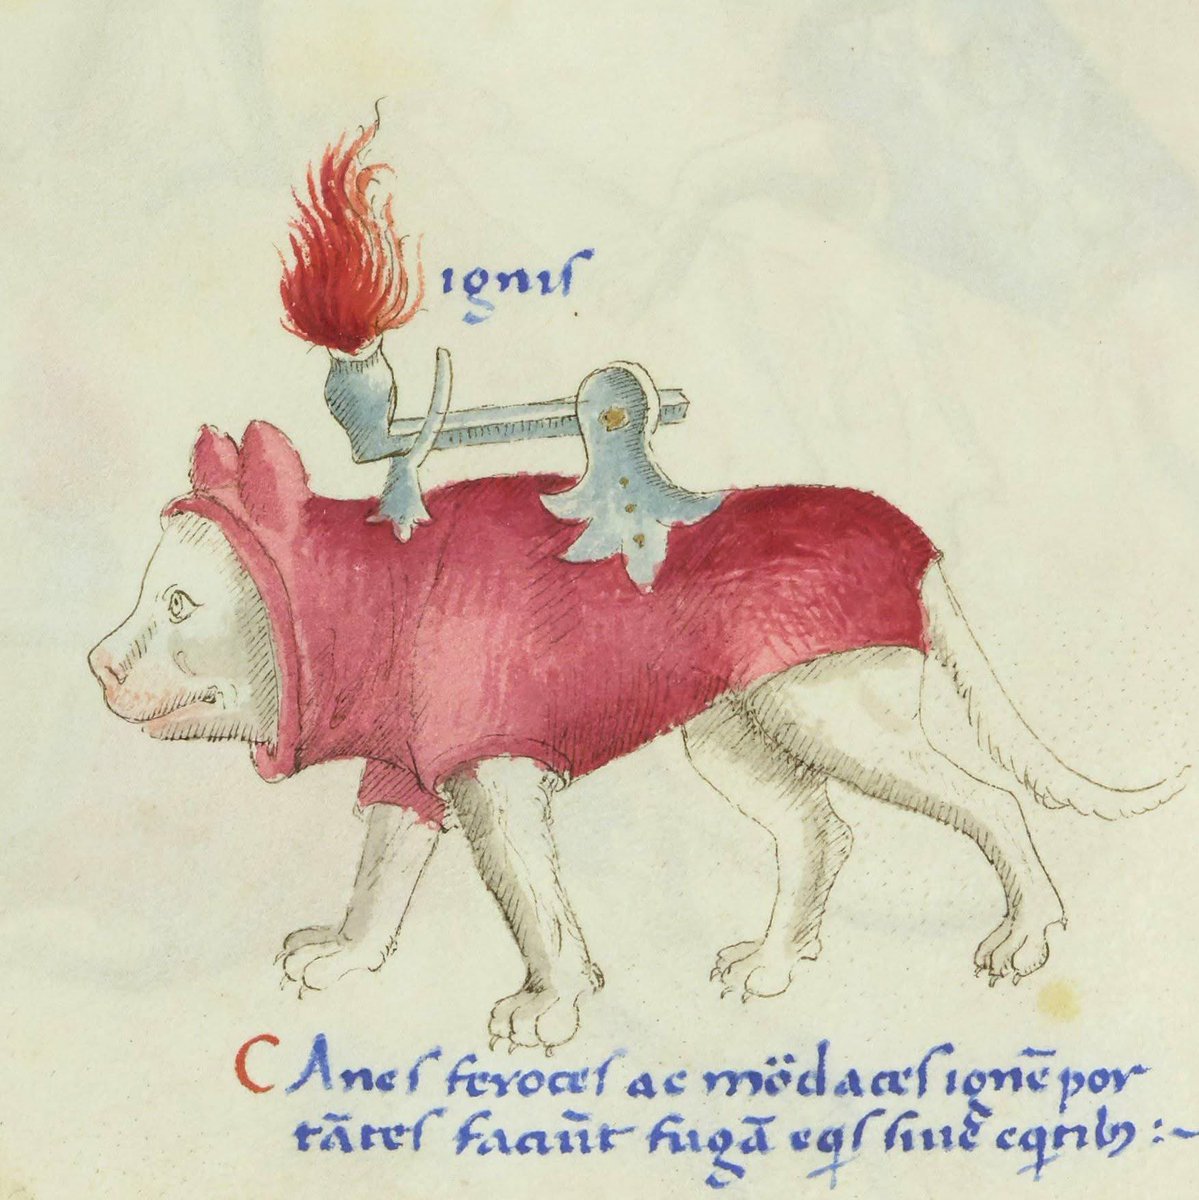 ignis
CAnes feroces ac mōdaces ignē por
tātes faciūt fugā eqs siuē eqtibꝫ :~